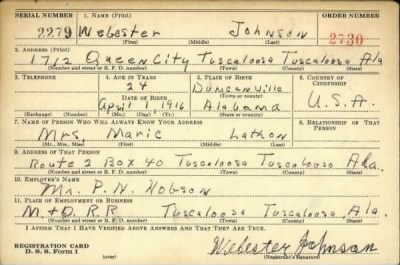 SERIAL NUMBER 1. NAME (Print) ORDER NUMBER
2279 Webester Johnson 2730
(First) (Middle) (Last)
2. ADDRESS (Print)
1712 Queen City Tuscaloosa Tuscaloosa Ala
(Number and street or R. F. D. number) (Town) (County) (State)
3. TELEPHONE 4. AGE IN YEARS 5. PLACE OF BIRTH 6. COUNTRY OF CITIZENSHIP
24 Duncanville
DATE OF BIRTH (Town or county)
April 1 1916 Alabama U.S.A.
(Exchange) (Number) (Mo.) (Day) (Yr.) (State or country)
7. NAME OF PERSON WHO WILL ALWAYS KNOW YOUR ADDRESS 8. RELATIONSHIP OF THAT PERSON
Mrs. Marie Lathon
(Mr., Mrs., Miss) (First) (Middle) (Last)
9. ADDRESS OF THAT PERSON
Route 2 Box 40 Tuscaloosa Tuscaloosa Ala.
(Number and street or R. F. D. number) (Town) (County) (State)
10. EMPLOYER'S NAME
Mr. P. N. Hobson
11. PLACE OF EMPLOYMENT OR BUSINESS
M+O. R R Tuscaloosa Tuscaloosa Ala.
(Number and street or R. F. D. number) (Town) (County) (State)
I AFFIRM THAT I HAVE VERIFIED ABOVE ANSWERS AND THAT THEY ARE TRUE.
REGISTRATION CARD
D. S. S. Form 1 (over) Webester Johnson
(Registrant's signature)